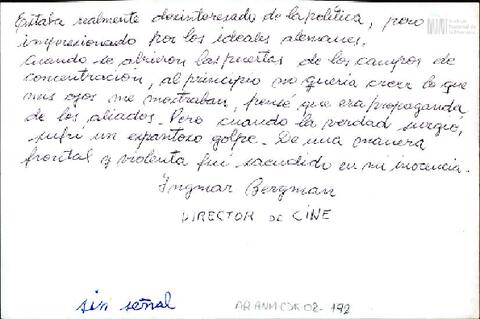 Estaba realmente desinteresado de la política, pero
impresionado por los ideales alemanes.
Cuando se abrieron las puertas de los campos de
concentración, al principio no quería creer lo que
mis ojos me mostraban, pensé que era propaganda
de los aliados. Pero cuando la verdad surgió,
sufrí un espantoso golpe. De una manera
frontal y violenta fui sacudido en mi inocencia.
Ingmar Bergman
DIRECTOR de CINE
sin señal
AR ANM CJK-02-192